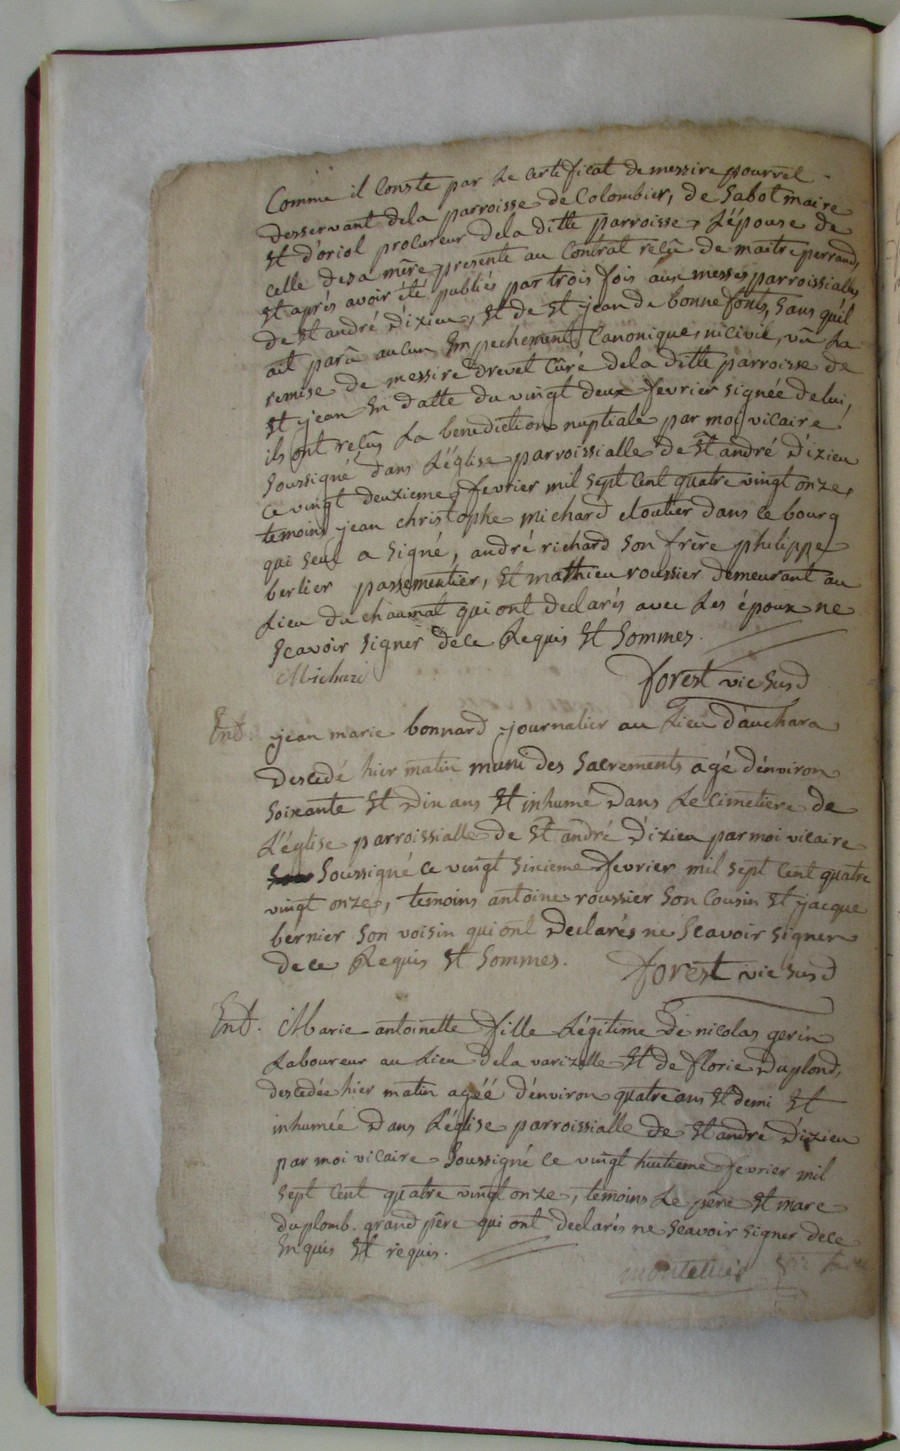 Comme il Conste par Le certificat de messire pourret
desservant dela parroisse de Colombier, de Sabot maire
Et d'oriol procureur dela ditte parroisse, L'épouse de
celle desa mère presente au Contrat reçû de maitre perrand,
Et aprés avoir été publiés par trois fois aux messes parroissialles
de St andré D'izieu, Et de St jean de bonnefonts, Sans qu'il
ait parû aucun Empechement Canonique, ni civil, vû La
remise de messire drevet Cûré dela ditte parroisse de
St jean En datte du vingt deux fevrier signée de lui,
ils ont reçûs La benediction nuptiale par moi vicaire
Soussigné dans L'église parroissialle de St andré D'izieu
ce vingt deuxieme fevrier mil sept Cent quatre vingt onze,
temoins jean christophe michard cloutier dans ce bourg
qui seul a signé, andré richard Son frère philippe
berlier passementier, Et mathieu roussier demeurant au
Lieu du chaumat qui ont declarés avec Les époux ne
Scavoir signer dece Requis Et Sommés.
Michard
forest vic Susd
Ent. jean marie bonnard journalier au Lieu d'auchara
Descedé hier matin muni des Sacrements agé d'environ
Soixante Et Dix ans Et inhumé Dans Le cimetiere de
L'église parroissialle de St andré D'izieu par moi vicaire
Soussigné ce vingt sixieme fevrier mil sept Cent quatre
vingt onze, temoins antoine roussier Son Cousin Et jacque
bernier Son voisin qui ont Declarés ne Scavoir signer
dece Requis Et Sommés. forest vic Susd
Ent. Marie antoinette fille Légitime De nicolas gerin
Laboureur au Lieu dela varizelle Et de florie Duplond,
descedée hier matin agéé d'énviron quatre ans Et demi Et
inhumée Dans L'église parroissialle de St andré D'izieu
par moi vicaire Soussigné ce vingt huitieme fevrier mil
sept Cent quatre vingt onze, temoins Le père Et marc
duplomb grand père qui ont declarés ne Scavoir signer dece
Enquis Et réquis.